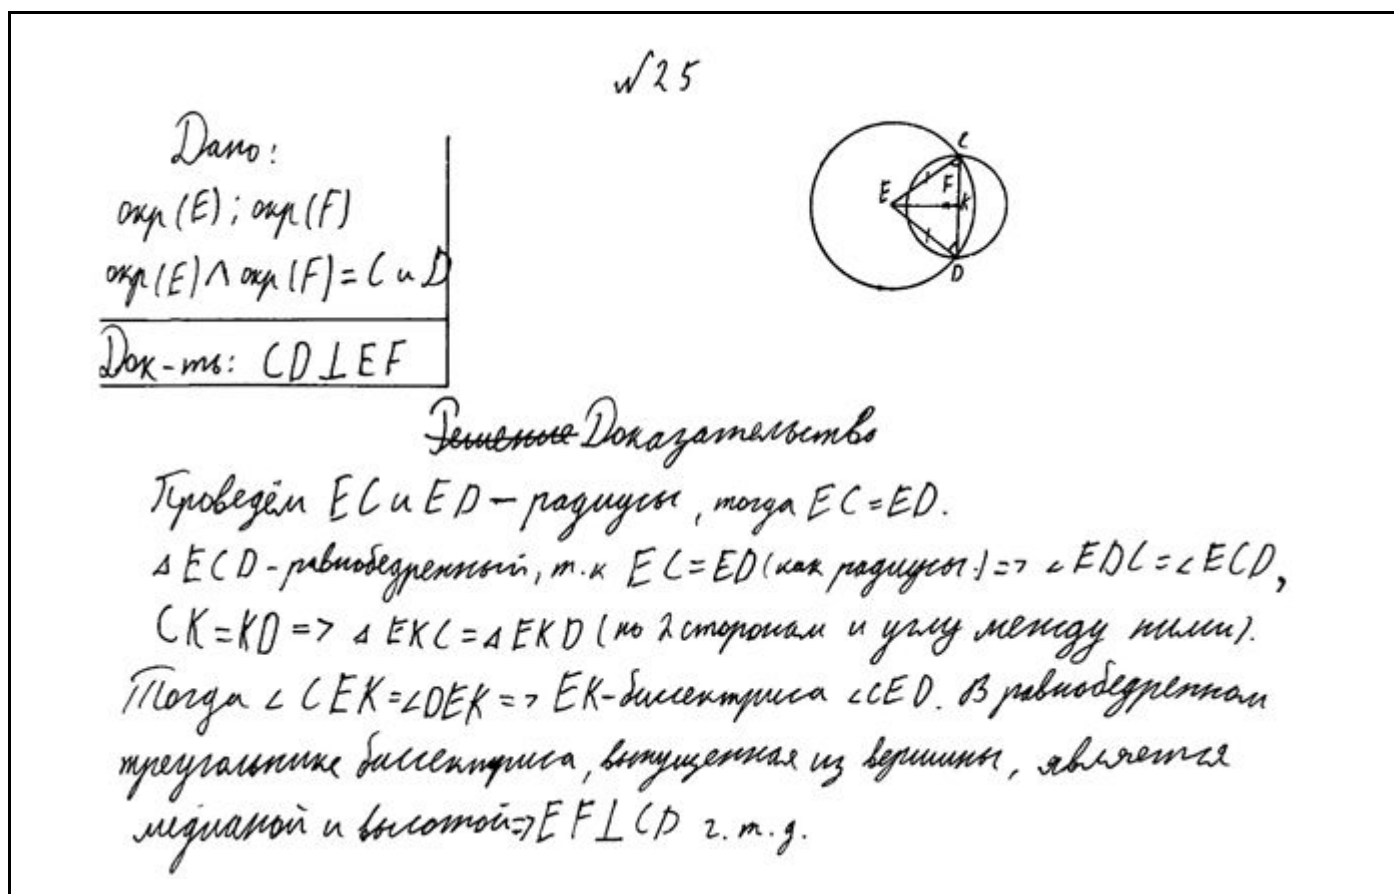 №25
Дано:
окр(E); окр(F)
окр(E)∧окр(F)=C и D
Док-ть: CD⊥EF
C
E
F
K
D
Решение Доказательство
Проведём EC и ED – радиусы, тогда EC=ED.
△ECD – равнобедренный, т.к EC=ED (как радиусы.) => ∠EDC=∠ECD,
CK=KD => △EKC=△EKD (по 2 сторонам и углу между ними).
Тогда ∠CEK=∠DEK => EK-биссектриса ∠CED. В равнобедренном
треугольнике биссектриса, выпущенная из вершины, является
медианой и высотой=>EF⊥CD ч.т.д.